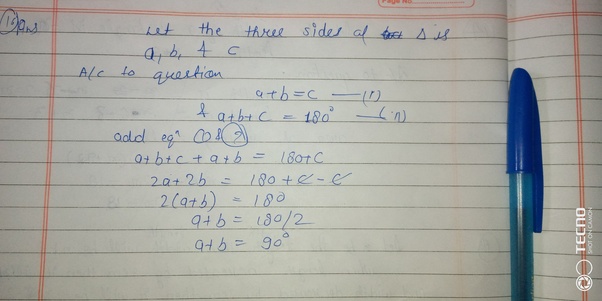 Page No.
15 Ans Let the three sides of Δ is
a, b, & c
A/c to question
a+b=c —(i)
& a+b+c = 180° —(ii)
add eqⁿ ① & ②
a+b+c + a+b = 180+c
2a+2b = 180 + c - c
2(a+b) = 180
a+b = 180/2
a+b = 90°
TECNO
SHOT ON CAMON